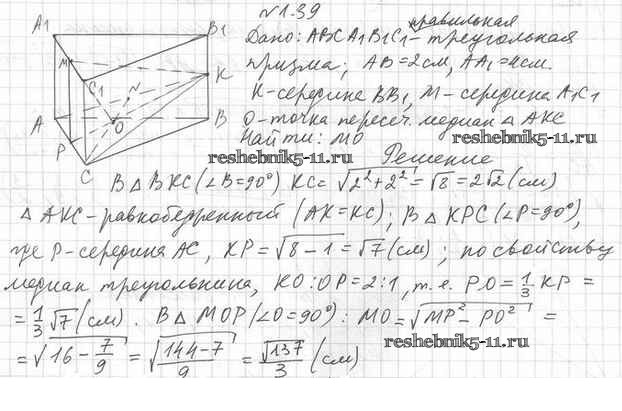 №1.39
правильная
Дано: ABCA1B1C1 - треугольная
призма; AB=2см, AA1=4см.
K-середине BB1, M-середина A1C1
O-точка пересеч. медиан △ AKC
Найти: MO
reshebnik5-11.ru
reshebnik5-11.ru
Решение
A1 B1 M K C1 N A O B P C
В △ BKC (∠B=90°) KC= √2²+2² = √8 = 2√2 (см)
△ AKC - равнобедренный (AK=KC); В △ KPC (∠P=90°),
где P-середина AC, KP=√8-1 = √7 (см); по свойству
медиан треугольника, KO:OP=2:1, т.е. PO=1/3 KP =
= 1/3 √7 (см). В △ MOP (∠O=90°): MO=√MP²-PO² =
= √16-7/9 = √144-7/9 = √137/3 (см)
reshebnik5-11.ru
reshebnik5-11.ru